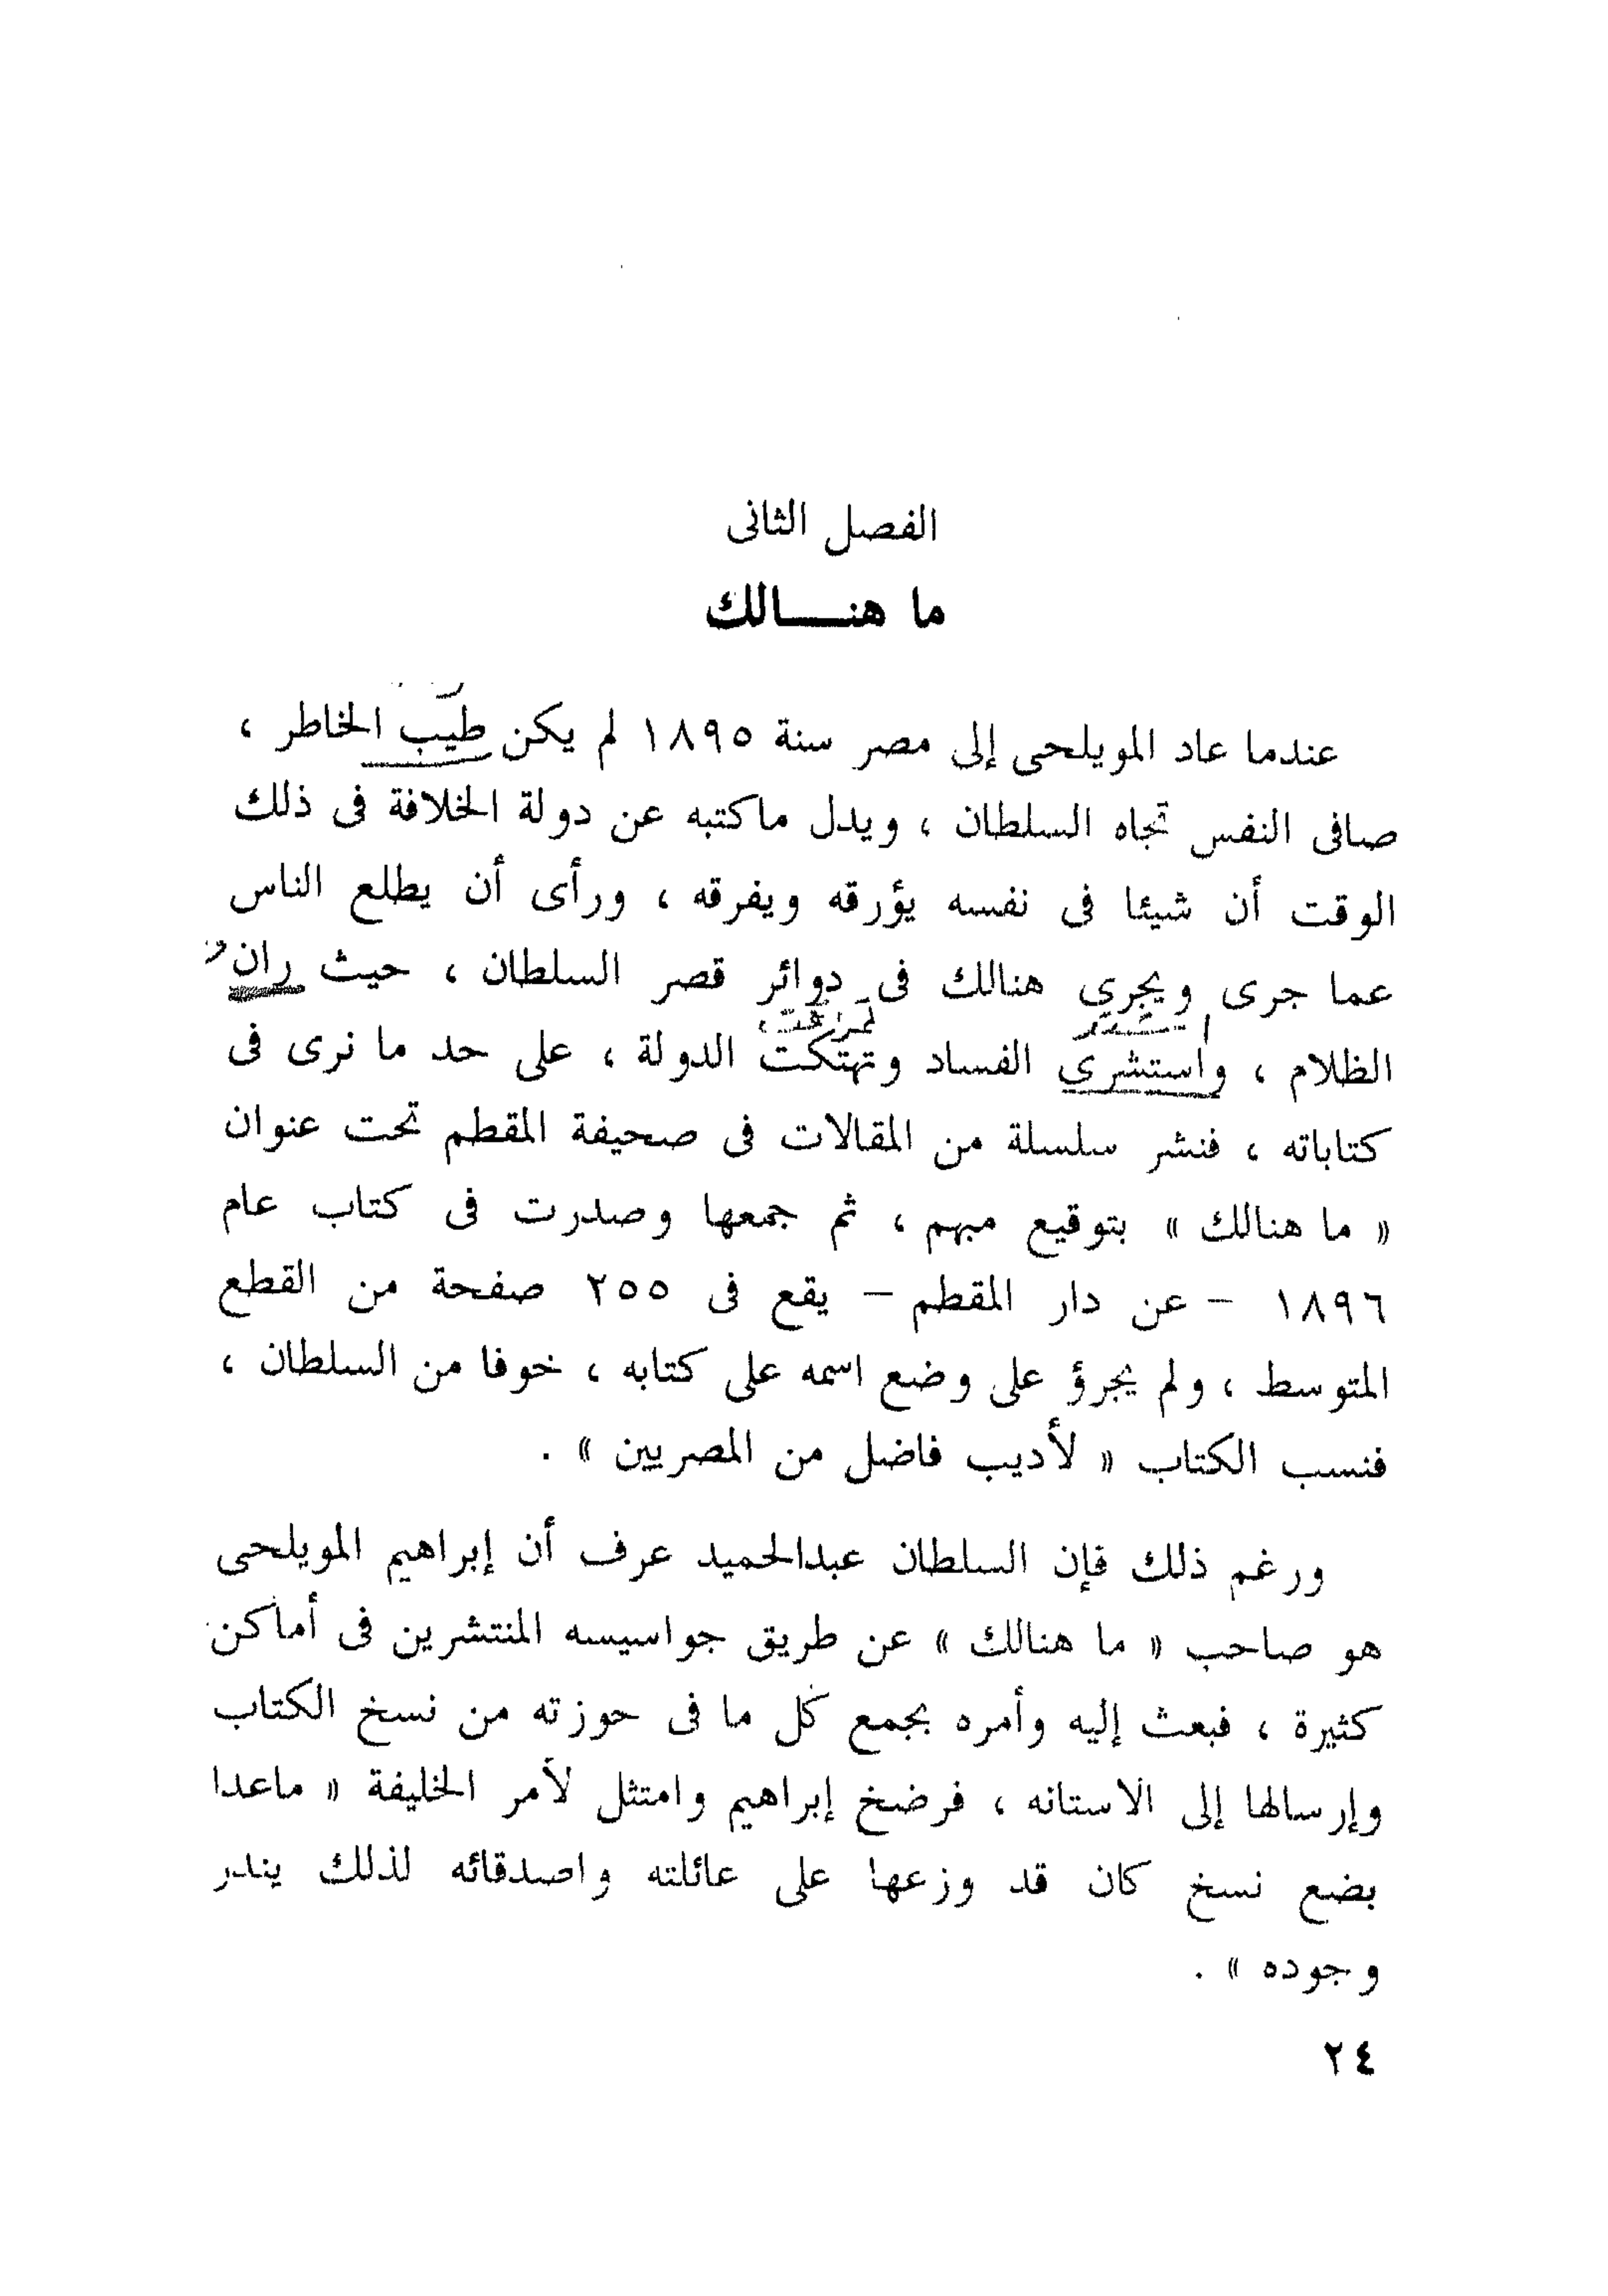 الفصل الثانى
ما هنـــالك
عندما عاد المويلحى إلى مصر سنة ١٨٩٥ لم يكن طيب الخاطر ،
صافى النفس تجاه السلطان ، ويدل ماكتبه عن دولة الخلافة فى ذلك
الوقت أن شيئا فى نفسه يؤرقه ويفرقه ، ورأى أن يطلع الناس
عما جرى ويجرى هنالك فى دوائر قصر السلطان ، حيث ران
الظلام ، واستشرى الفساد وتهتكت الدولة ، على حد ما نرى فى
كتاباته ، فنشر سلسلة من المقالات فى صحيفة المقطم تحت عنوان
« ما هنالك » بتوقيع مبهم ، ثم جمعها وصدرت فى كتاب عام
١٨٩٦ - عن دار المقطم – يقع فى ٢٥٥ صفحة من القطع
المتوسط ، ولم يجرؤ على وضع اسمه على كتابه ، خوفا من السلطان ،
فنسب الكتاب « لأديب فاضل من المصريين » .
ورغم ذلك فإن السلطان عبدالحميد عرف أن إبراهيم المويلحى
هو صاحب « ما هنالك » عن طريق جواسيسه المنتشرين فى أماكن
كثيرة ، فبعث إليه وأمره بجمع كل ما فى حوزته من نسخ الكتاب
وإرسالها إلى الاستانه ، فرضخ إبراهيم وامتثل لأمر الخليفة « ماعدا
بضع نسخ كان قد وزعها على عائلته واصدقائه لذلك يندر
وجوده » .
٢٤